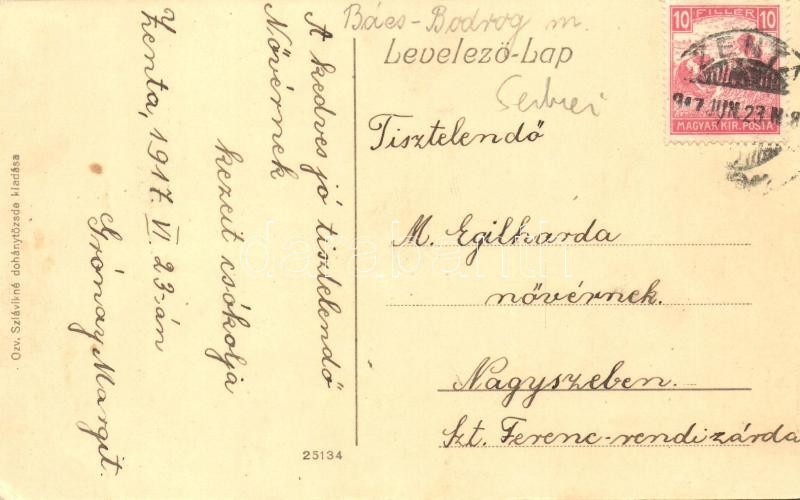 Bács-Bodrog m.
Levelező-Lap
10 FILLÉR 10
MAGYAR KIR. POSTA
ZENTA
917 JUN. 23
Tisztelendő
M. Egilharda
nővérnek.
Nagyszeben.
Szt. Ferenc-rendi zárda
A kedves jó tisztelendő
Nővérnek
kezeit csókolja
Zenta, 1917. VI. 23-án
Grónay Margit.
Özv. Szlávikné dohánytőzsde kiadása
25134
darabanth